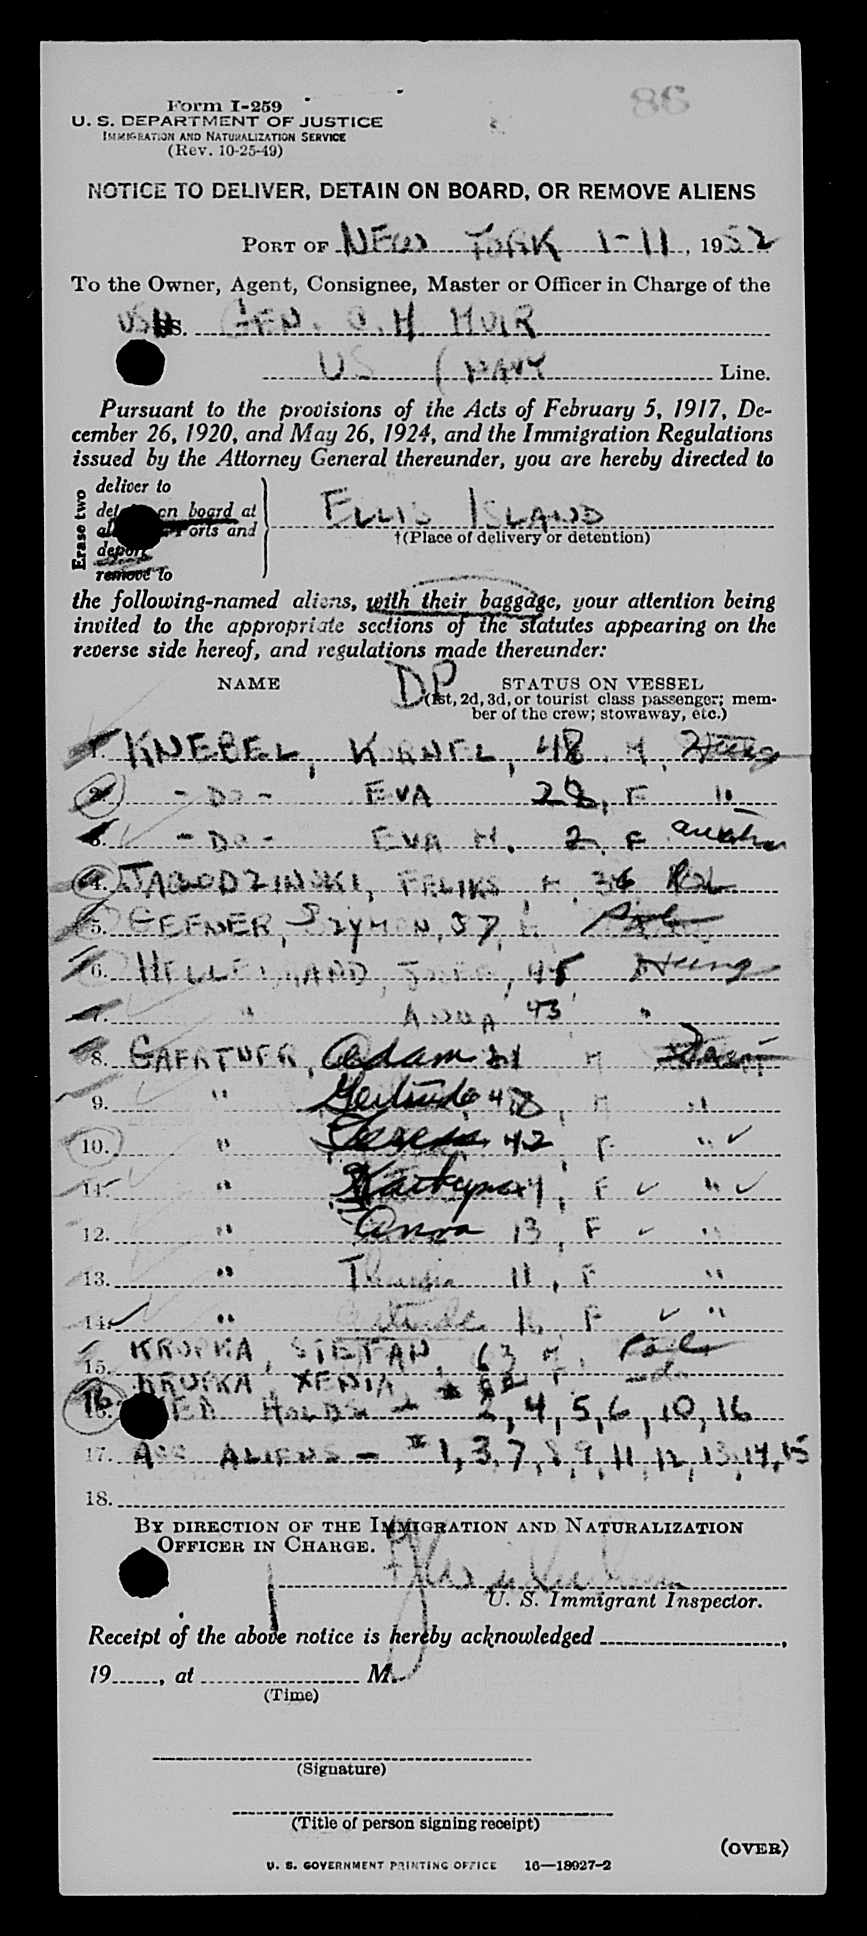 86
Form I-259
U. S. DEPARTMENT OF JUSTICE
IMMIGRATION AND NATURALIZATION SERVICE
(Rev. 10-25-49)
NOTICE TO DELIVER, DETAIN ON BOARD, OR REMOVE ALIENS
PORT OF NEW YORK 1-11, 1952
To the Owner, Agent, Consignee, Master or Officer in Charge of the
SS. GEN. C. H. MUIR
US (NAVY Line.
Pursuant to the provisions of the Acts of February 5, 1917, De-
cember 26, 1920, and May 26, 1924, and the Immigration Regulations
issued by the Attorney General thereunder, you are hereby directed to
Erase two
deliver to
on board at
ports and
deport
remove to
ELLIS ISLAND
†(Place of delivery or detention)
the following-named aliens, with their baggage, your attention being
invited to the appropriate sections of the statutes appearing on the
reverse side hereof, and regulations made thereunder:
NAME DP STATUS ON VESSEL
(1st, 2d, 3d, or tourist class passenger; mem-
ber of the crew; stowaway, etc.)
1. KNEBEL, KORNEL, 48. M, Hung
2. - DO - EVA 28, F "
3. - DO - EVA M. 2. F
4. FELIKS M 36 Pol
5. GEFNER, SZYMON, 37, Pol
6. 45 Hung
7. " ANNA 43 "
8. GAERTNER, Adam 21 M
9. " 48, M "
10. " 42, F "
11. " F "
12. " Anna 13, F "
13. " 11, F "
14. " Gertrude 16 F "
15. KROPKA, STEFAN, 63 M.
16. KROPKA, XENIA F
MED HOLDS - 2, 4, 5, 6, 10, 16
17. ALIENS - # 1, 3, 7, 8, 9, 11, 12, 13, 14, 15
18.
BY DIRECTION OF THE IMMIGRATION AND NATURALIZATION
OFFICER IN CHARGE.
U. S. Immigrant Inspector.
Receipt of the above notice is hereby acknowledged
19......, at M.
(Time)
(Signature)
(Title of person signing receipt)
(OVER)
U. S. GOVERNMENT PRINTING OFFICE 16—18927-2